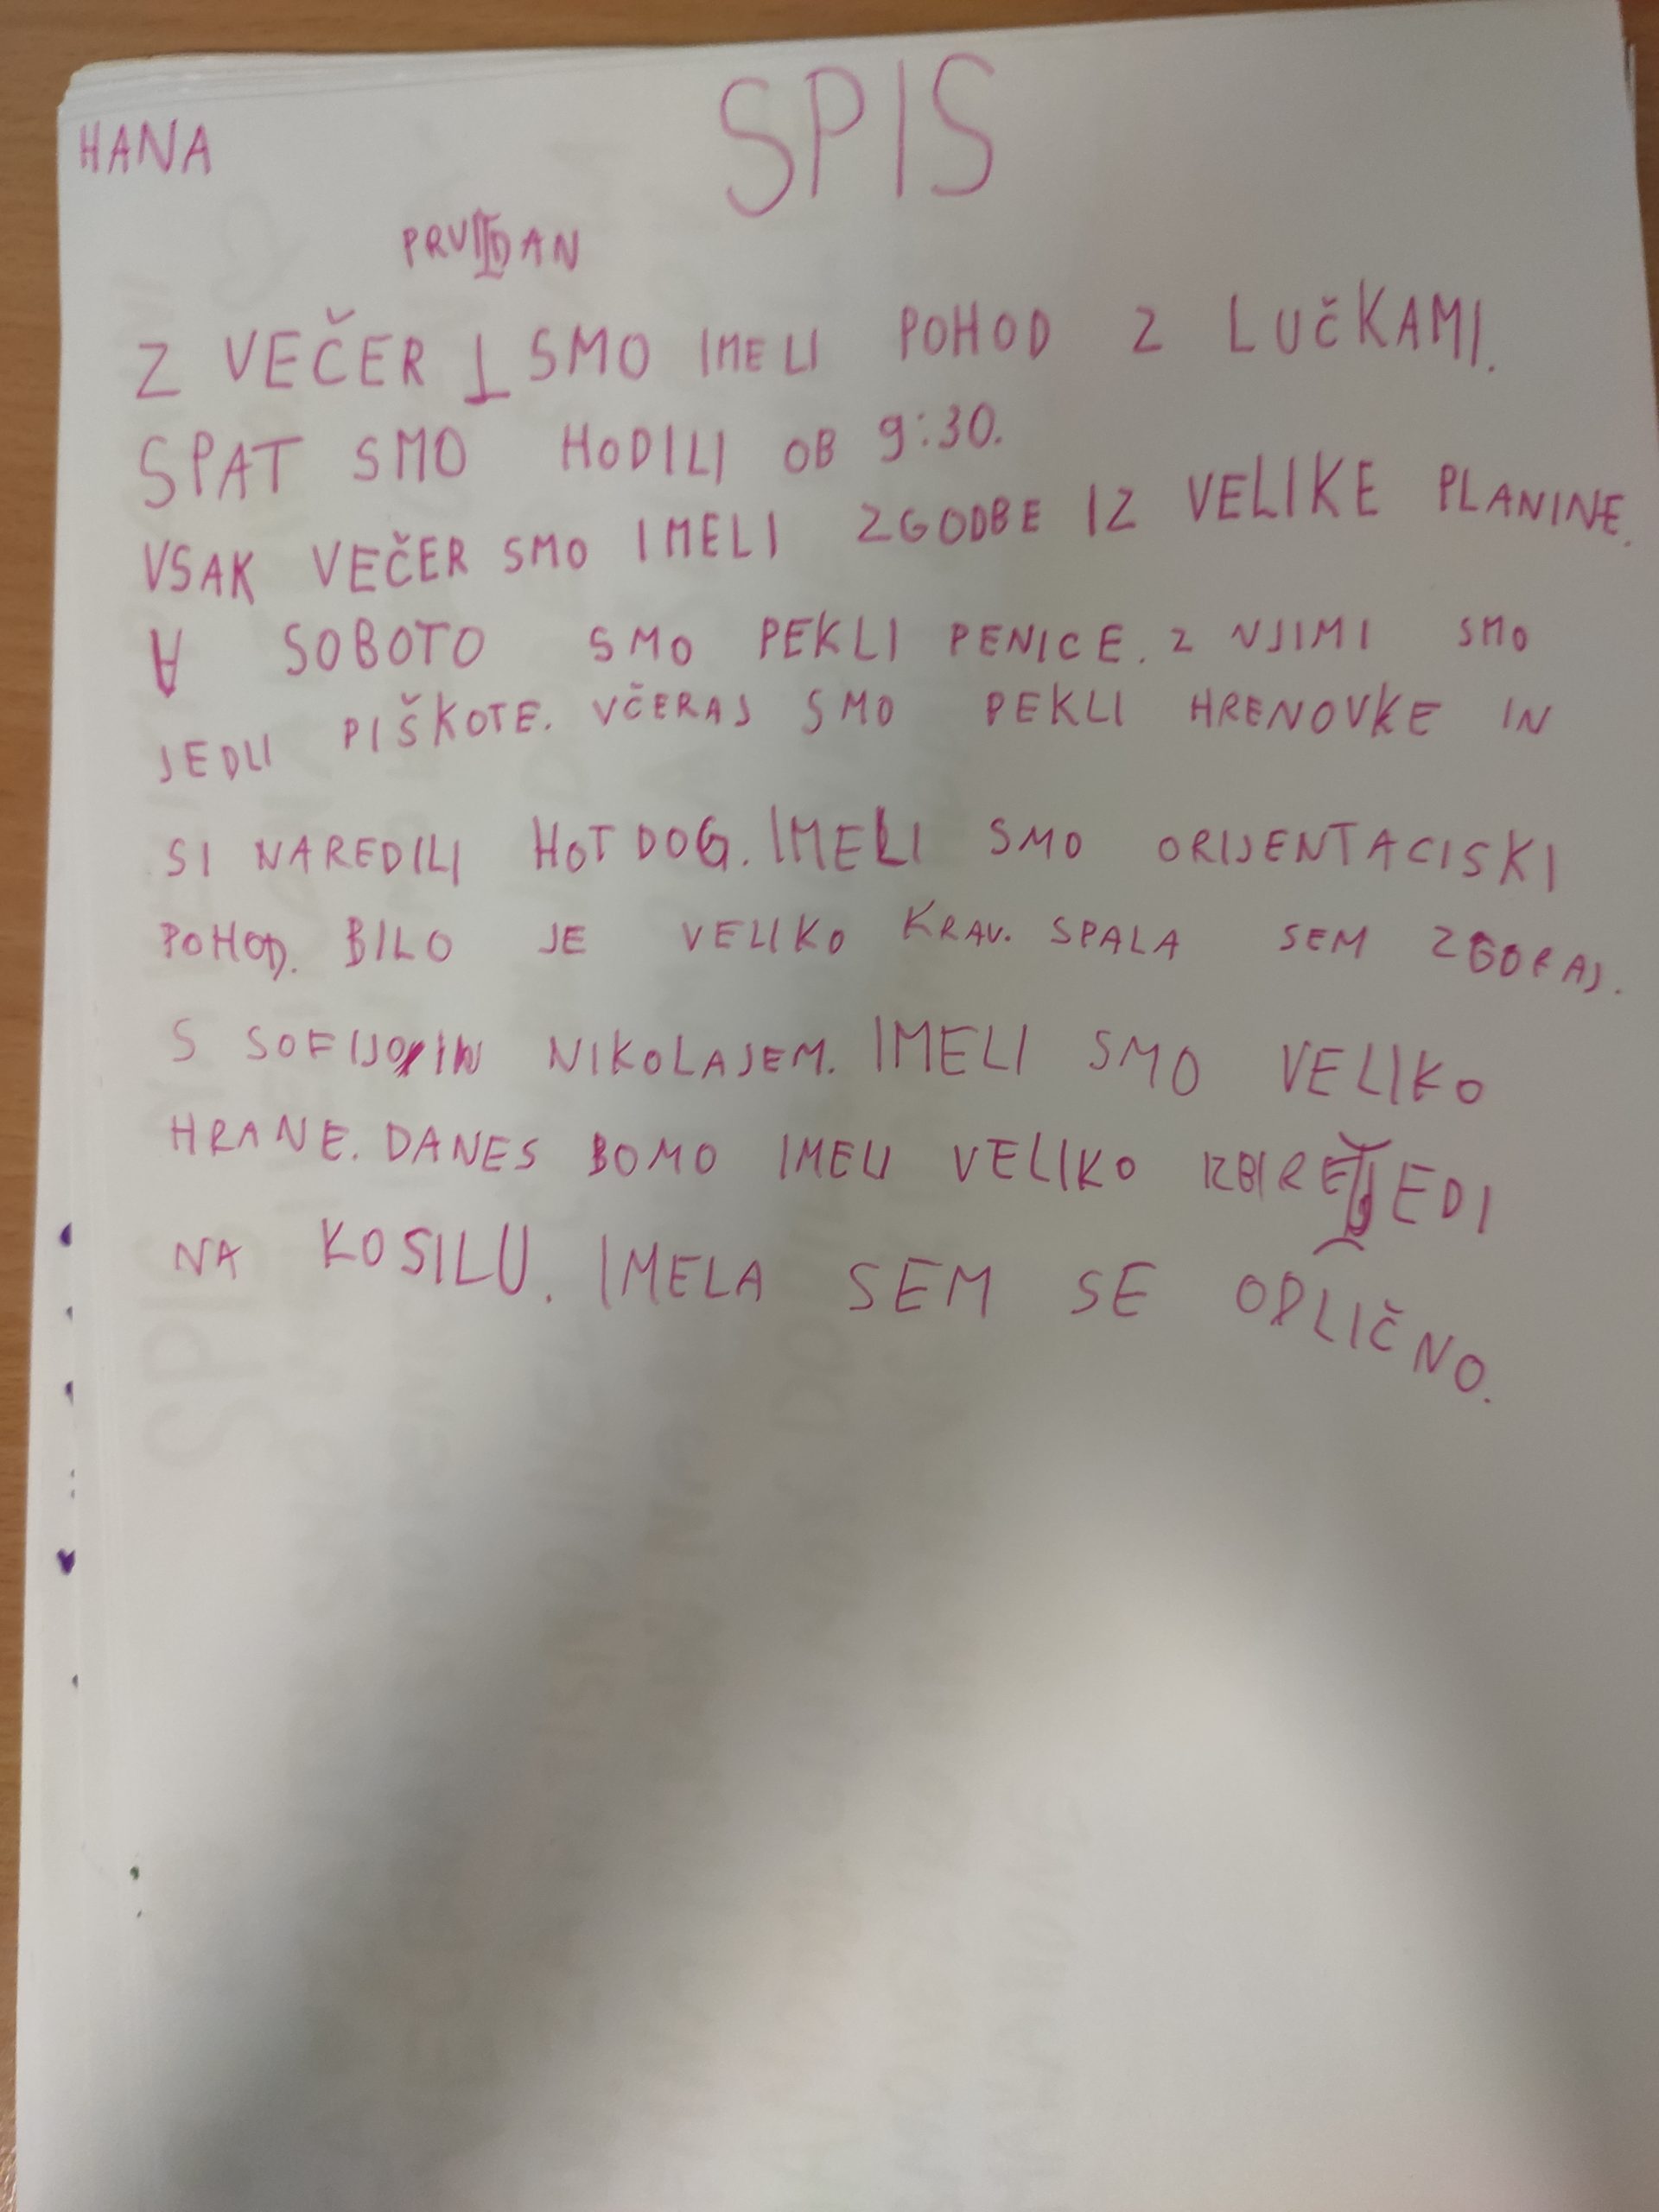 SPIS
HANA
PRVI DAN
Z VEČER SMO IMELI POHOD Z LUČKAMI.
SPAT SMO HODILI OB 9:30.
VSAK VEČER SMO IMELI ZGODBE IZ VELIKE PLANINE.
V SOBOTO SMO PEKLI PENICE. Z NJIMI SMO
JEDLI PIŠKOTE. VČERAJ SMO PEKLI HRENOVKE IN
SI NAREDILI HOT DOG. IMELI SMO ORIJENTACISKI
POHOD. BILO JE VELIKO KRAV. SPALA SEM ZGORAJ.
S SOFIJO IN NIKOLAJEM. IMELI SMO VELIKO
HRANE. DANES BOMO IMELI VELIKO IZBIRE JEDI
NA KOSILU. IMELA SEM SE ODLIČNO.